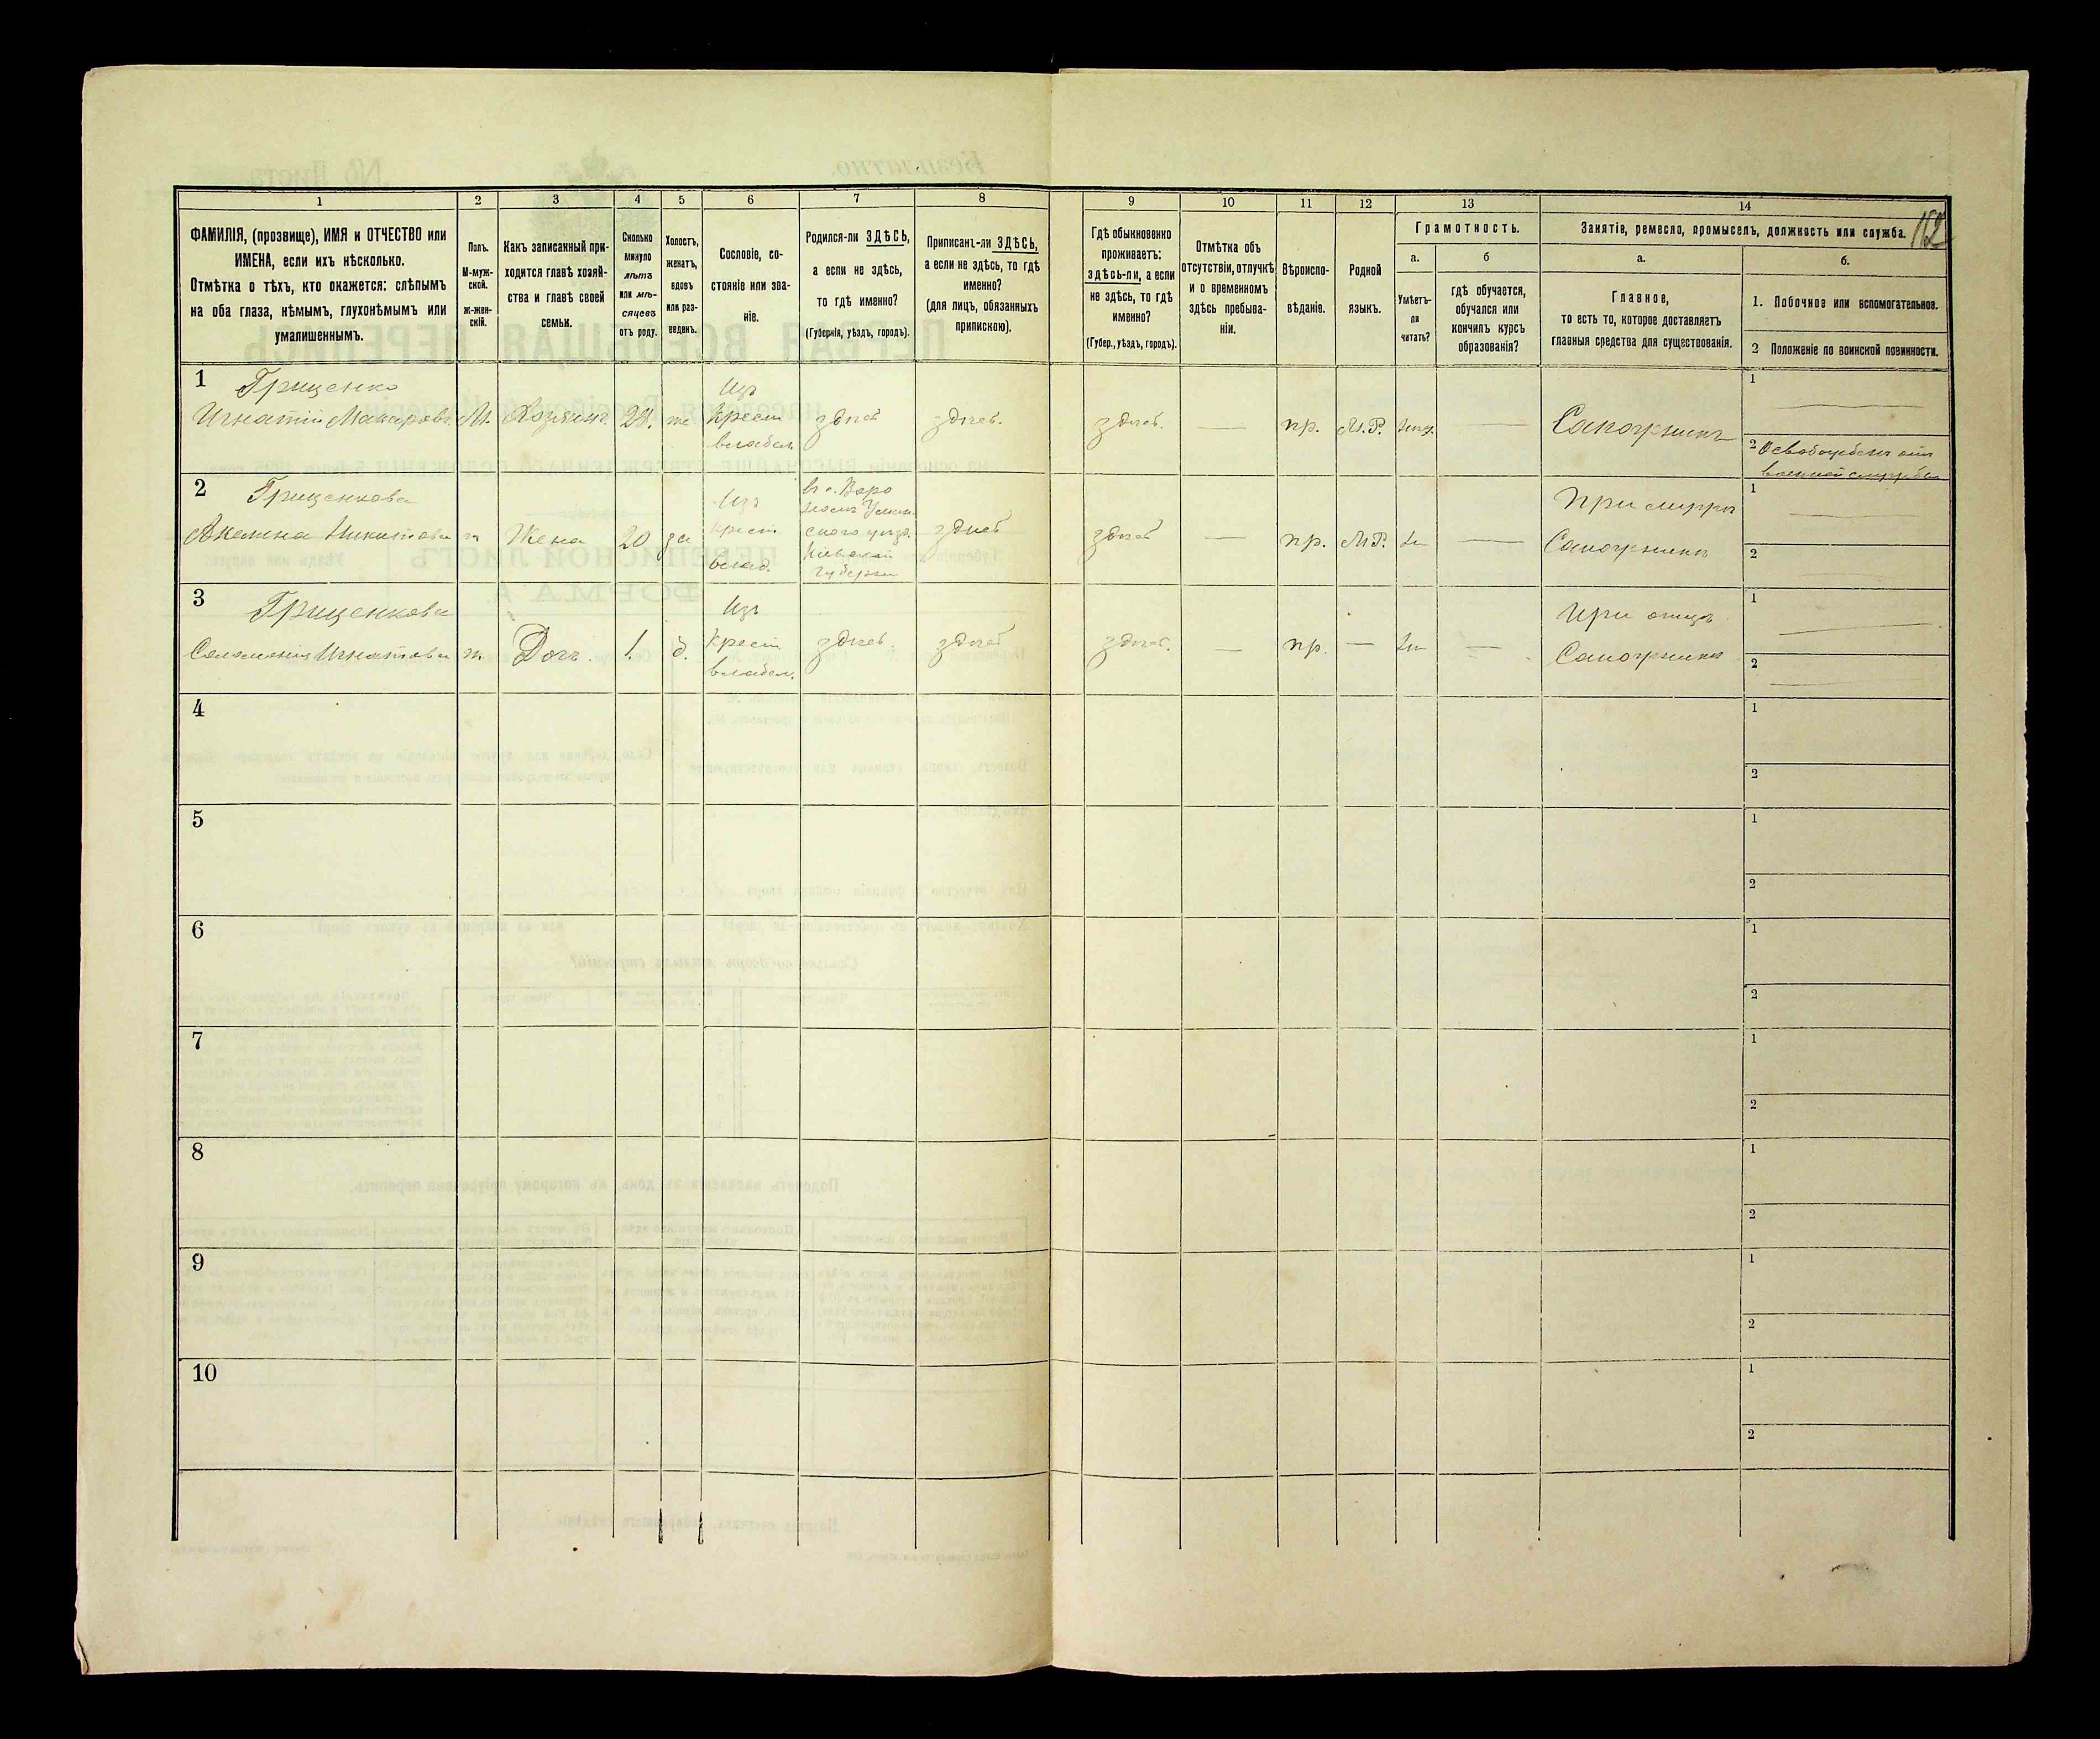 1 2 3 4 5 6 7 8 9 10 11 12 13 14
ФАМИЛІЯ, (прозвище), ИМЯ и ОТЧЕСТВО или
ИМЕНА, если ихъ нѣсколько.
Отмѣтка о тѣхъ, кто окажется: слѣпымъ
на оба глаза, нѣмымъ, глухонѣмымъ или
умалишеннымъ.
Полъ.
М-муж-
ской.
ж-жен-
скій.
Какъ записанный при-
ходится главѣ хозяй-
ства и главѣ своей
семьи.
Сколько
минуло
лѣтъ
или мѣ-
сяцевъ
отъ роду.
Холостъ,
женатъ,
вдовъ
или раз-
веденъ.
Сословіе, со-
стояніе или зва-
ніе.
Родился-ли ЗДѢСЬ,
а если не здѣсь,
то гдѣ именно?
(Губернія, уѣздъ, городъ).
Приписанъ-ли ЗДѢСЬ,
а если не здѣсь, то гдѣ
именно?
(для лицъ, обязанныхъ
припискою).
Гдѣ обыкновенно
проживаетъ:
здѣсь-ли, а если
не здѣсь, то гдѣ
именно?
(Губер., уѣздъ, городъ).
Отмѣтка объ
отсутствіи, отлучкѣ
и о временномъ
здѣсь пребыва-
ніи.
Вѣроиспо-
вѣданіе.
Родной
языкъ.
Грамотность.
а.
Умѣетъ-
ли
читать?
б
гдѣ обучается,
обучался или
кончилъ курсъ
образованія?
Занятіе, ремесло, промыселъ, должность или служба.
а.
Главное,
то есть то, которое доставляетъ
главныя средства для существованія.
б.
1. Побочное или вспомогательное.
2 Положеніе по воинской повинности.
1 Грищенко
Игнатій Макаровъ М. Хозяинъ 28. ж
Изъ
крест
владел.
здѣсь здѣсь. здѣсь. — пр. М.Р. —
Сапожникъ
1 —
2 Освобожденъ отъ
военной службы
2 Грищенкова
Акелина Никитова ж Жена 20 за
Изъ
крест
влад.
Уман
ского уѣзд.
Кіевской
губерни
здѣсь здѣсь — пр. М.Р. —
При мужѣ
Сапожникѣ
1 —
2
3 Грищенкова
Соломонія Игнатова ж. Дочь. 1. д.
Изъ
крест
владел.
здѣсь. здѣсь здѣсь. — пр. — —
При отцѣ
Сапожникѣ
1 —
2
4 1
2
5 1
2
6 1
2
7 1
2
8 1
2
9 1
2
10 1
2